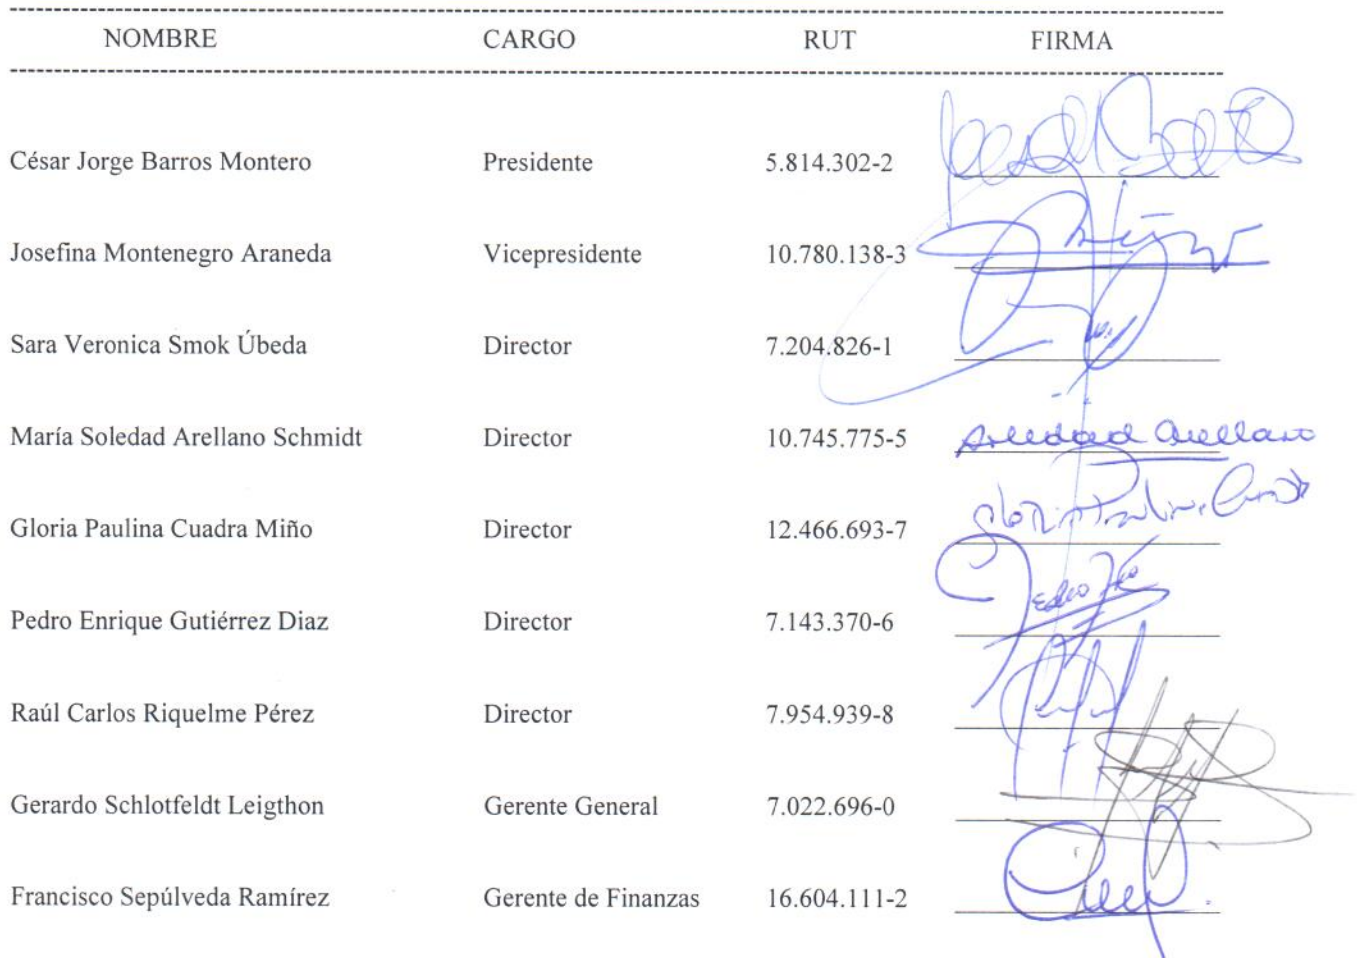 NOMBRE CARGO RUT FIRMA
César Jorge Barros Montero Presidente 5.814.302-2
Josefina Montenegro Araneda Vicepresidente 10.780.138-3
Sara Veronica Smok Úbeda Director 7.204.826-1
María Soledad Arellano Schmidt Director 10.745.775-5 Soledad Arellano
Gloria Paulina Cuadra Miño Director 12.466.693-7 Gloria Paulina Cuadra
Pedro Enrique Gutiérrez Diaz Director 7.143.370-6 Pedro
Raúl Carlos Riquelme Pérez Director 7.954.939-8
Gerardo Schlotfeldt Leigthon Gerente General 7.022.696-0
Francisco Sepúlveda Ramírez Gerente de Finanzas 16.604.111-2